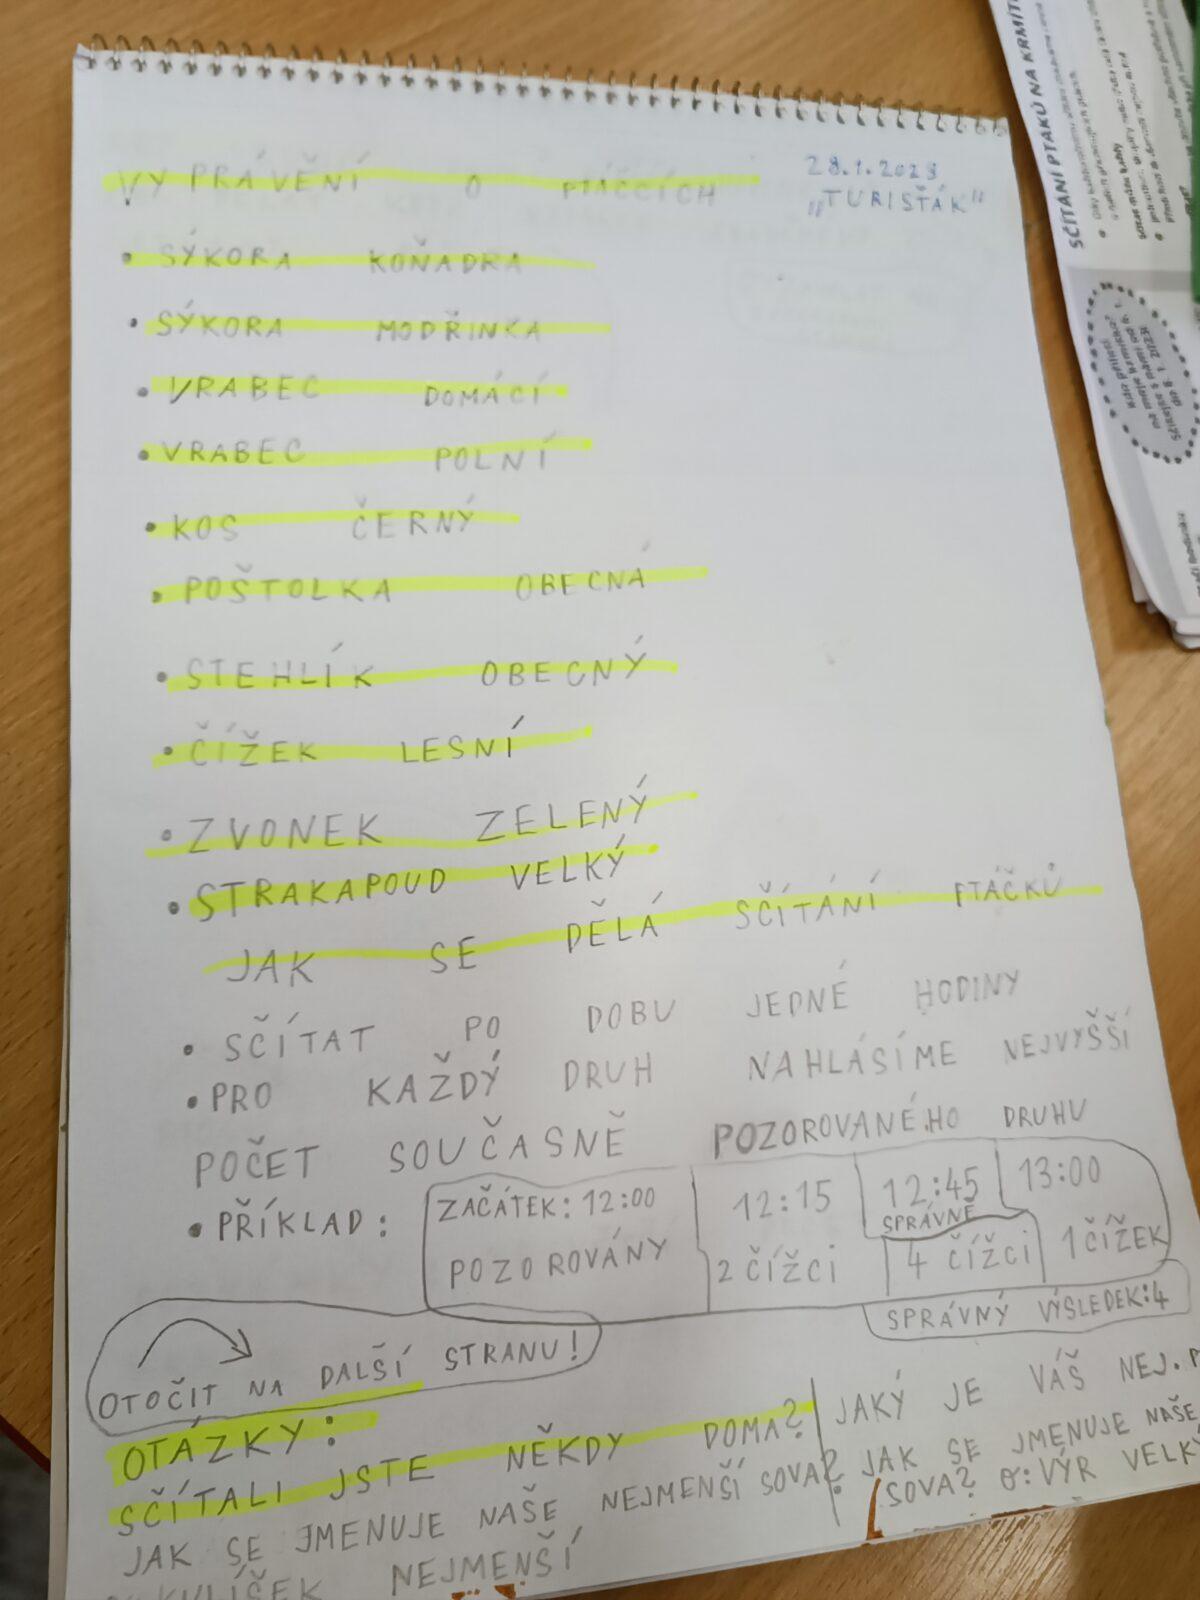 VYPRÁVĚNÍ O PTÁČCÍCH
28.1.2023
„TURISŤÁK"
• SÝKORA KOŇADRA
• SÝKORA MODŘINKA
• VRABEC DOMÁCÍ
• VRABEC POLNÍ
• KOS ČERNÝ
• POŠTOLKA OBECNÁ
• STEHLÍK OBECNÝ
• ČÍŽEK LESNÍ
• ZVONEK ZELENÝ
• STRAKAPOUD VELKÝ
JAK SE DĚLÁ SČÍTÁNÍ PTÁČKŮ
• SČÍTAT PO DOBU JEDNÉ HODINY
• PRO KAŽDÝ DRUH NAHLÁSÍME NEJVYŠŠÍ
POČET SOUČASNĚ POZOROVANÉHO DRUHU
• PŘÍKLAD:
ZAČÁTEK: 12:00 12:15 12:45 13:00
SPRÁVNĚ
POZOROVÁNY 2 ČÍŽCI 4 ČÍŽCI 1 ČÍŽEK
SPRÁVNÝ VÝSLEDEK: 4
OTOČIT NA DALŠÍ STRANU!
OTÁZKY:
SČÍTALI JSTE NĚKDY DOMA? JAKÝ JE VÁŠ NEJ.
JAK SE JMENUJE NAŠE NEJMENŠÍ SOVA? JAK SE JMENUJE NAŠE
SOVA? O: VÝR VELKÝ
KULÍŠEK NEJMENŠÍ
SČÍTÁNÍ PTÁKŮ NA KRMÍT